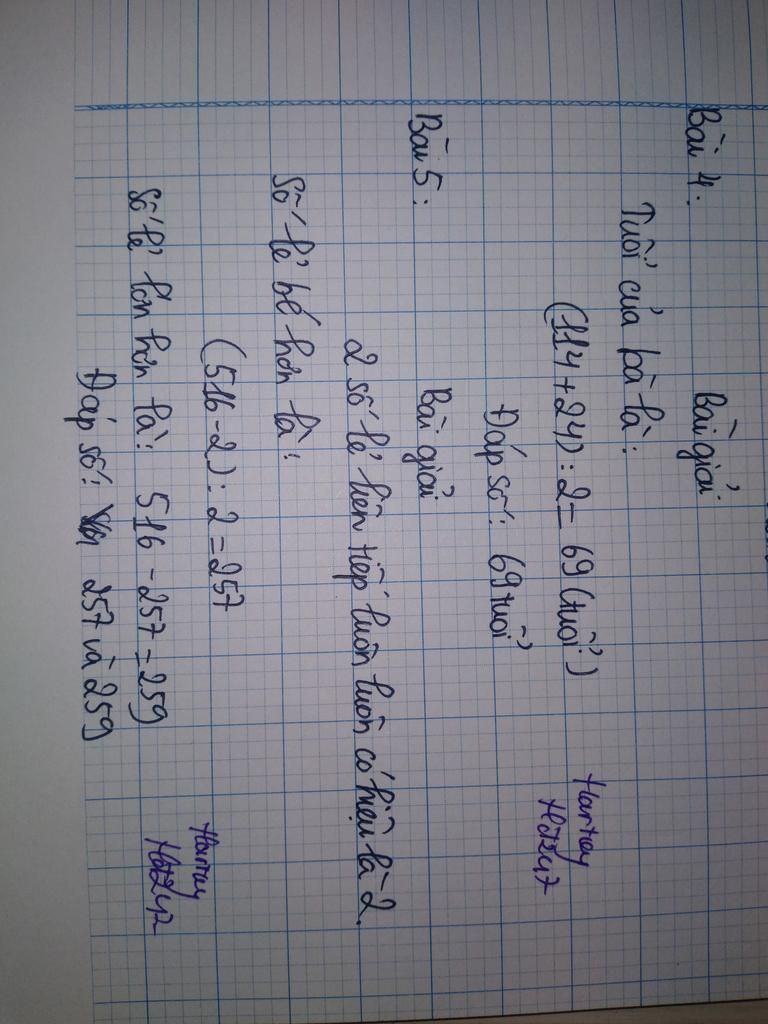 Bài 4:
Bài giải
Tuổi của bà là:
(114 + 24) : 2 = 69 (tuổi)
Đáp số: 69 tuổi
Bài 5:
Bài giải
2 số lẻ liên tiếp luôn luôn có hiệu là 2.
Số lẻ bé hơn là:
(516 - 2) : 2 = 257
Số lẻ lớn hơn là: 516 - 257 = 259
Đáp số: 257 và 259